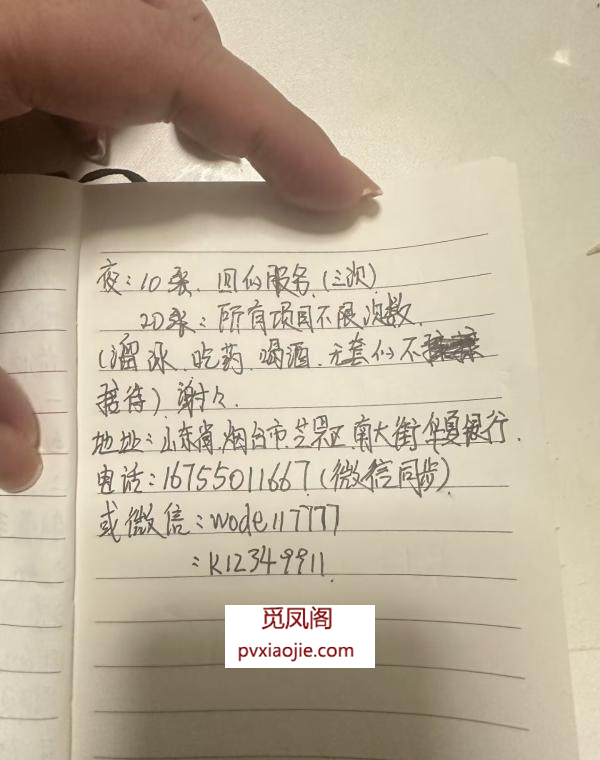 夜：10张、服务(三次)
20张：所有项目不限次数.
(溜冰.吃药.喝酒.无套的不
接待)谢谢.
地址：山东省.烟台市.芝罘区.南大街华夏银行.
电话：16755011667(微信同步)
或微信：wode117777
：K12349911.
觅凤阁
pvxiaojie.com